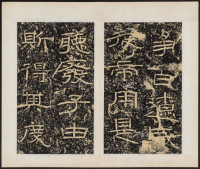 爭百遼咸
從帝用是
聽廢子由
斯得其度